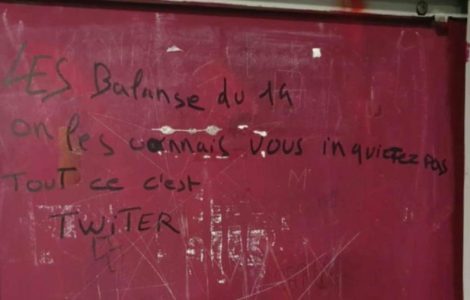 LES Balanse du 14
on les connais vous inquietez pas
TOUT ce c'est
TWiTER